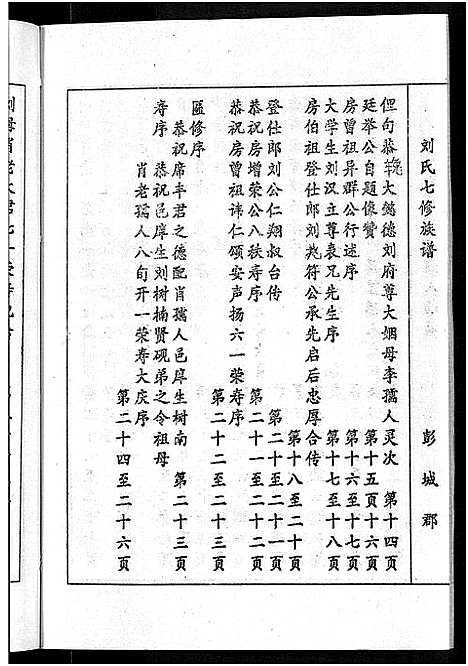 刘氏七修族谱 彭城郡
但句恭挽大懿德刘府尊大姻母李孺人灵次 第十四页
廷举公自题像赞 第十五页十六页
房曾祖异群公行述序 第十六至十七页
大学生刘汉立尊表兄先生序 第十七至十八页
房伯祖登仕郎刘尭符公承先启后忠厚合传 第十八至二十页
登仕郎刘公仁翔叔台传 第二十至二十一页
恭祝房增荣公八秩寿序 第二十一至二十二页
恭祝房曾祖讳仁颂安声扬六一荣寿序 第二十二至二十三页
匾修序
恭祝席丰君之德配肖孺人邑庠生树南 第二十三页
寿序 恭祝邑庠生刘树楠贤砚弟之令祖母
肖老孺人八旬开一荣寿大庆序 第二十四至二十六页